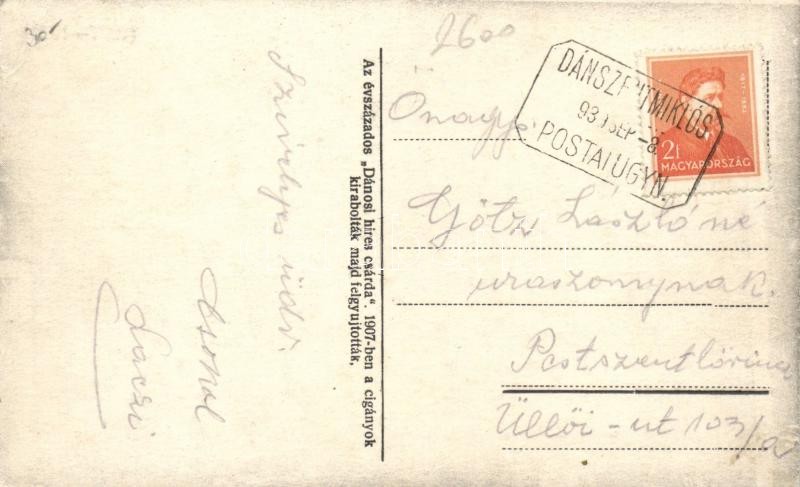 30
2600
DÁNSZENTMIKLÓS.
93 SEP -8.
POSTAI ÜGYN.
2f
MAGYARORSZÁG
Az évszázados „Dánosi hires csárda" 1907-ben a cigányok
kirabolták majd felgyujtották.
Szivélyes üdv.
Csókol
Laczi
Onagys.
Götz Lászlóné
uraszonynak.
Pestszentlőrinc
Üllői-ut 103/a